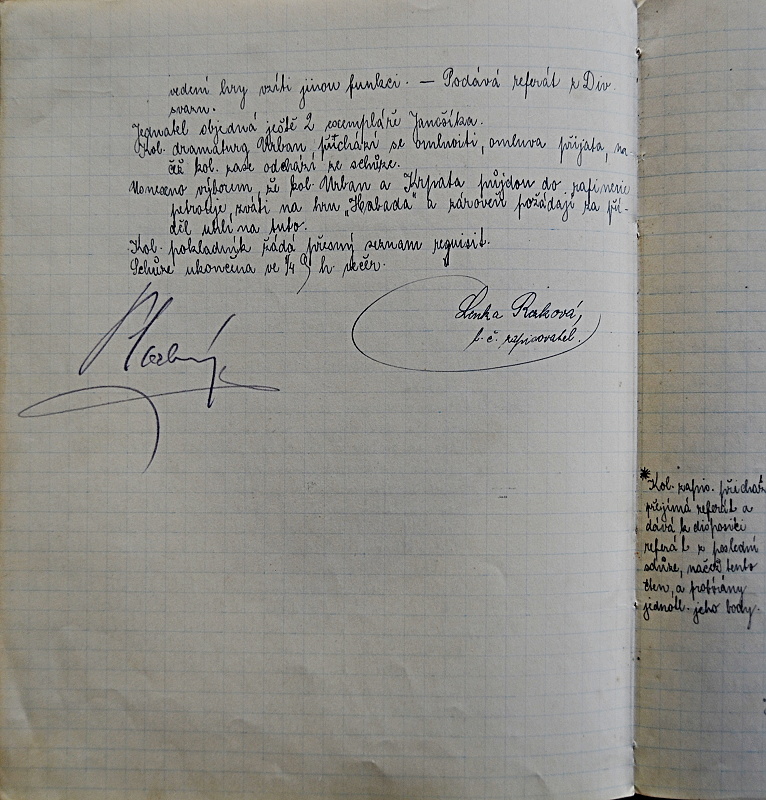 vedení hry vzíti jinou funkci. — Podává referát z Div.
svazu.
Jednatel objedná ještě 2 exempláře Jánošíka.
Kol. dramaturg Urban přichází se omluviti, omluva přijata, na-
čež kol. zase odchází ze schůze.
Usneseno výborem, že kol. Urban a Krpata půjdou do rafinerie
petroleje, zváti na hru „Habada" a zároveň požádají za pří-
děl uhlí na tuto.
Kol. pokladník žádá přesný seznam requisit.
Schůze ukončena ve 1/4 9 h. večer.
Lenka Raková,
t. č. zapisovatel.
* Kol. zapis. přichází
přejímá referát a
dává k disposici
referát z poslední
schůze, načež tento
čten, a probrány
jednotl. jeho body.